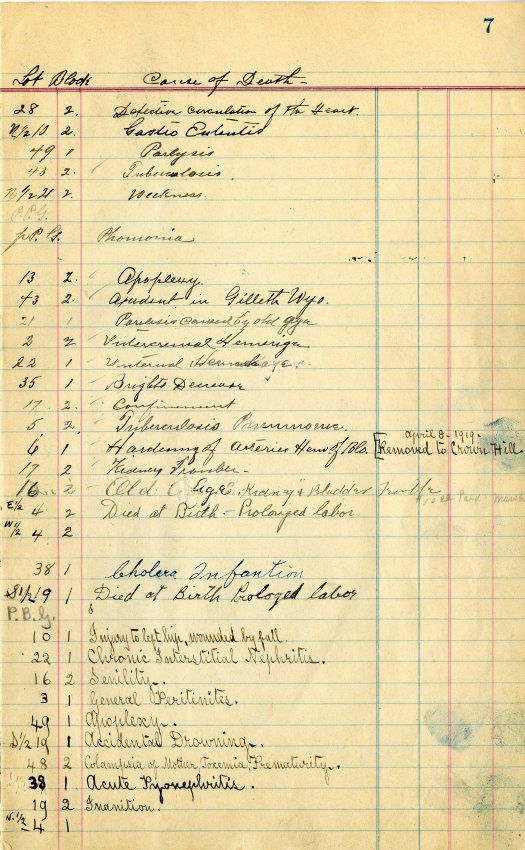 7
Lot Block Cause of Death -
28 2. Defective circulation of the Heart.
N 1/2 10 2. Gastro Enteritis
49 1 Parlysis
43 2. Tuberculosis.
N 1/2 21 2. Weekness.
P. P. G.
P. P. G. Phomonia
13 2. Apoplexy.
43 2. Axident in Gilleth Wyo.
21 1 Paralesis caused by old age
2 2 Intercrenal Hemeriga
22 1 Internal
35 1 Brights Decease
17 2. Confinement
5 2. Tuberculosis Pneumonia.
april 8 - 1919 -
6 1 Hardening of Arteries Hem of Bla. [Removed to Crown Hill.
17 2 Kidney Trouble -
16 2 Old Age, Kidney & Bladder trouble
E 1/2 4 2 Died at Birth - Prolonged labor
W 1/2 4 2
38 1 Cholera Infantion
S 1/2 19 1 Died at Birth Prologed labor
P. B. G.
10 1 Injury to left hip, wounded by fall
22 1 Chronic Interstitial Nephritis.
16 2 Senility.
3 1 General Peritinites.
49 1 Apoplexy.
S 1/2 19 1 Accidental Drowning.
48 2 Colampsia of Mother, Toxemia, Prematurity.
38 1 Acute Pyonephritis.
19 2 Inanition.
N. 1/2 4 1